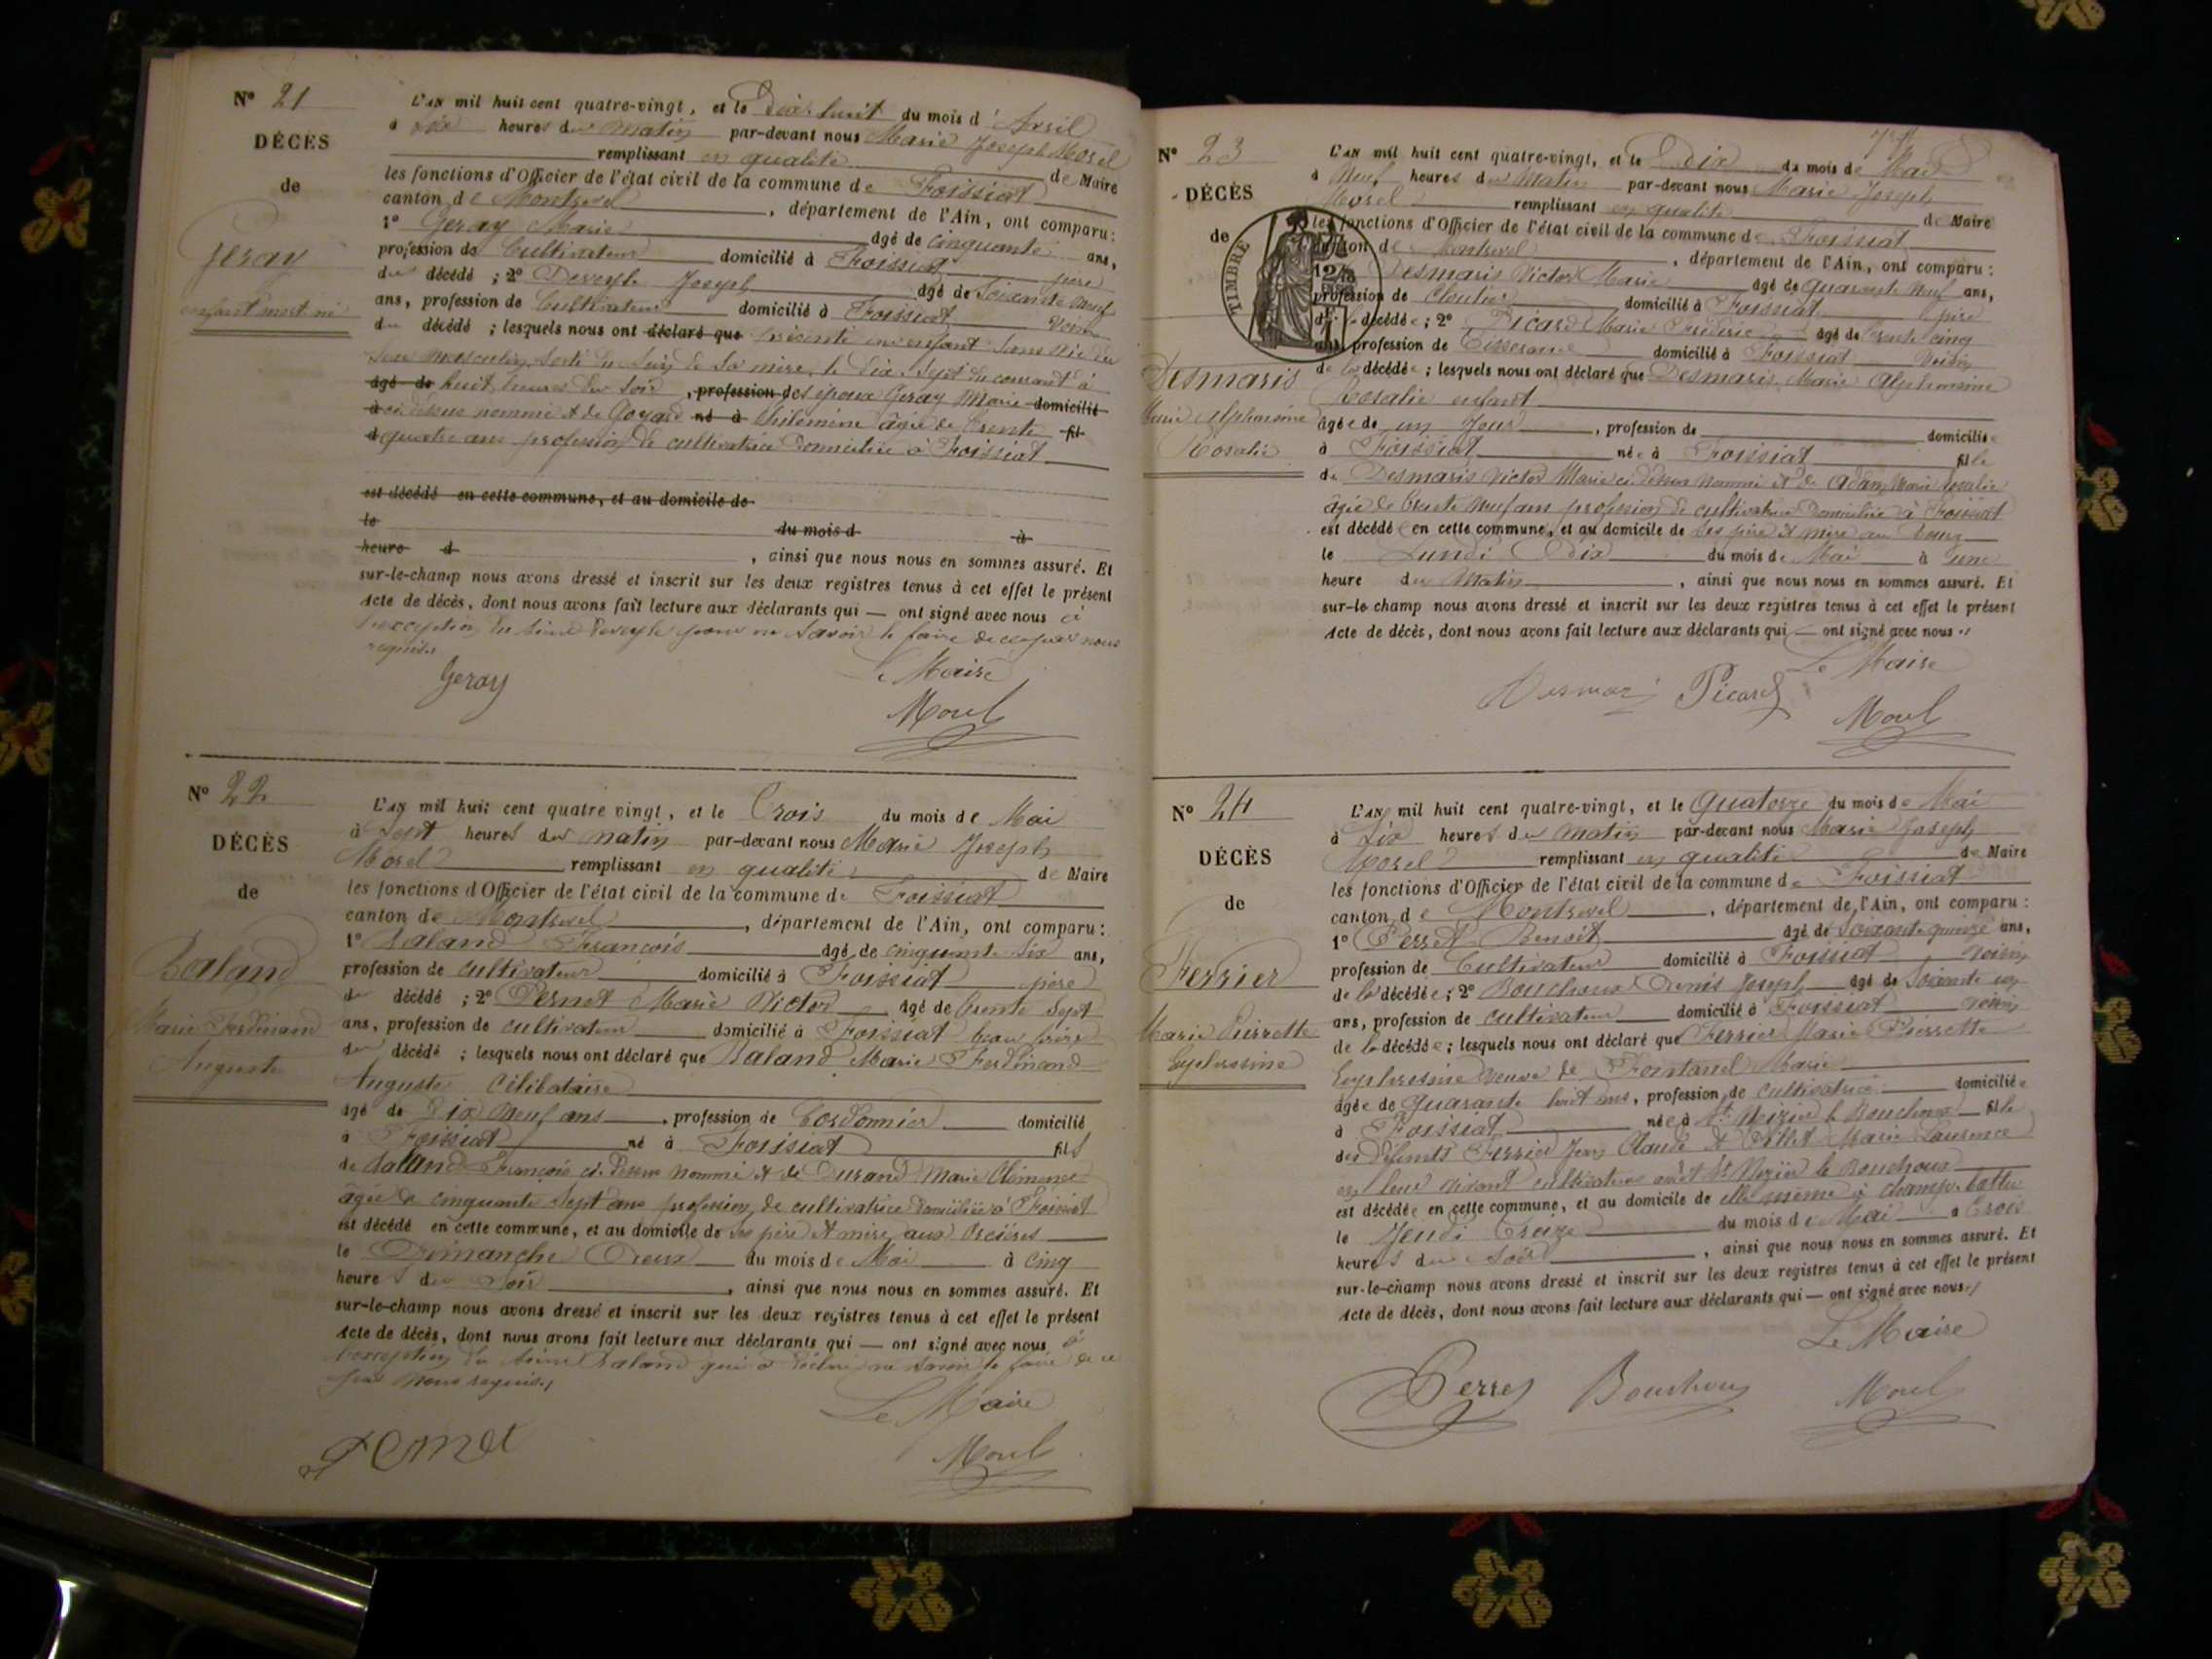 N° 21
DÉCÈS
de
Geray
enfant mort né
L'AN mil huit cent quatre-vingt, et le Dix huit du mois d'Avril
à Six heures du matin par-devant nous Marie Joseph Morel
remplissant en qualité de Maire
les fonctions d'Officier de l'état civil de la commune de Foissiat
canton de Montrevel, département de l'Ain, ont comparu :
1° Geray Marie âgé de cinquante ans,
profession de Cultivateur domicilié à Foissiat père
du décédé ; 2° Deveyle Joseph âgé de Soixante neuf
ans, profession de Cultivateur domicilié à Foissiat voisin
du décédé ; lesquels nous ont déclaré que présenté un enfant Sans Vie du
Sexe masculin, Sorti du Sein de Sa mère, le dix-Sept du courant à
âgé de huit heures du Soir, profession des époux Geray Marie domicilié
à ci dessus nommé et de Goyard né à Philomène âgée de trente fil
d quatre ans profession de cultivatrice domiciliée à Foissiat
est décédé en cette commune, et au domicile de
le du mois d à
heure d , ainsi que nous nous en sommes assuré. Et
sur-le-champ nous avons dressé et inscrit sur les deux registres tenus à cet effet le présent
Acte de décès, dont nous avons fait lecture aux déclarants qui — ont signé avec nous à
l'exception du Sieur Deveyle pour ne Savoir le faire de ce par nous
requis
Geray
Le Maire
Morel
N° 22
DÉCÈS
de
Baland
Marie Ferdinand
Auguste
L'AN mil huit cent quatre vingt, et le Trois du mois de Mai
à Sept heures du matin par-devant nous Marie Joseph
Morel remplissant en qualité de Maire
les fonctions d'Officier de l'état civil de la commune de Foissiat
canton de Montrevel, département de l'Ain, ont comparu :
1° Baland François âgé de cinquante Six ans,
profession de cultivateur domicilié à Foissiat père
du décédé ; 2° Pernet Marie Victor âgé de trente Sept
ans, profession de cultivateur domicilié à Foissiat beau frère
du décédé ; lesquels nous ont déclaré que Baland Marie Ferdinand
Auguste Célibataire
âgé de Dix Neuf ans, profession de Cordonnier domicilié
à Foissiat né à Foissiat fils
de Baland François ci dessus nommé et de Durand Marie Clémence
âgée de cinquante Sept ans profession de cultivatrice domiciliée à Foissiat
est décédé en cette commune, et au domicile de Ses père et mère, aux
le Dimanche Deux du mois de Mai à Cinq
heures du Soir, ainsi que nous nous en sommes assuré. Et
sur-le-champ nous avons dressé et inscrit sur les deux registres tenus à cet effet le présent
Acte de décès, dont nous avons fait lecture aux déclarants qui — ont signé avec nous à
l'exception du Sieur Baland qui a déclaré ne Savoir le faire de ce
par nous requis
Pernet
Le Maire
Morel
N° 23
DÉCÈS
de
TIMBRE
Desmaris
Marie Alphonsine
Rosalie
L'AN mil huit cent quatre-vingt, et le Dix du mois de Mai
à Neuf heures du Matin par-devant nous Marie Joseph
Morel remplissant en qualité de Maire
les fonctions d'Officier de l'état civil de la commune de Foissiat
canton de Montrevel, département de l'Ain, ont comparu :
Desmaris Victor Marie âgé de quarante Neuf ans,
profession de Cloutier domicilié à Foissiat père
de la décédée ; 2° Picard Marie Fréderic âgé de trente cinq
ans, profession de Tisserand domicilié à Foissiat Voisin
de la décédée ; lesquels nous ont déclaré que Desmaris Marie Alphonsine
Rosalie enfant
âgée de un Jour, profession de domiciliée
à Foissiat née à Foissiat fille
de Desmaris Victor Marie ci dessus nommé et de Adam Marie Rosalie
âgée de trente Neuf ans profession de cultivatrice Domiciliée à Foissiat
est décédée en cette commune, et au domicile de Ses père et mère au bourg
le Lundi Dix du mois de Mai à une
heure du Matin, ainsi que nous nous en sommes assuré. Et
sur-le champ nous avons dressé et inscrit sur les deux registres tenus à cet effet le présent
Acte de décès, dont nous avons fait lecture aux déclarants qui — ont signé avec nous
Le Maire
Desmaris Picard
Morel
N° 24
DÉCÈS
de
Ferrier
Marie Pierrette
Euphrosine
L'AN mil huit cent quatre-vingt, et le Quatorze du mois de Mai
à Six heures du matin par-devant nous Marie Joseph
Morel remplissant en qualité de Maire
les fonctions d'Officier de l'état civil de la commune de Foissiat
canton de Montrevel, département de l'Ain, ont comparu :
1° Perret Benoit âgé de Soixante quinze ans,
profession de Cultivateur domicilié à Foissiat voisin
de la décédée ; 2° Bouchoux Denis Joseph âgé de Soixante un
ans, profession de cultivateur domicilié à Foissiat voisin
de la décédée ; lesquels nous ont déclaré que Ferrier Marie Pierrette
Euphrosine veuve de Fontanel Marie
âgée de quarante huit ans, profession de cultivatrice domiciliée
à Foissiat née à St Nizier le Bouchoux fille
des défunts Ferrier Jean Claude et Marie Laurence
en leur vivant cultivateurs à St Nizier le Bouchoux
est décédée en cette commune, et au domicile de elle même à champ battu
le Jeudi Treize du mois de Mai à Trois
heures du Soir, ainsi que nous nous en sommes assuré. Et
sur-le-champ nous avons dressé et inscrit sur les deux registres tenus à cet effet le présent
Acte de décès, dont nous avons fait lecture aux déclarants qui — ont signé avec nous
Le Maire
Perret Bouchoux Morel